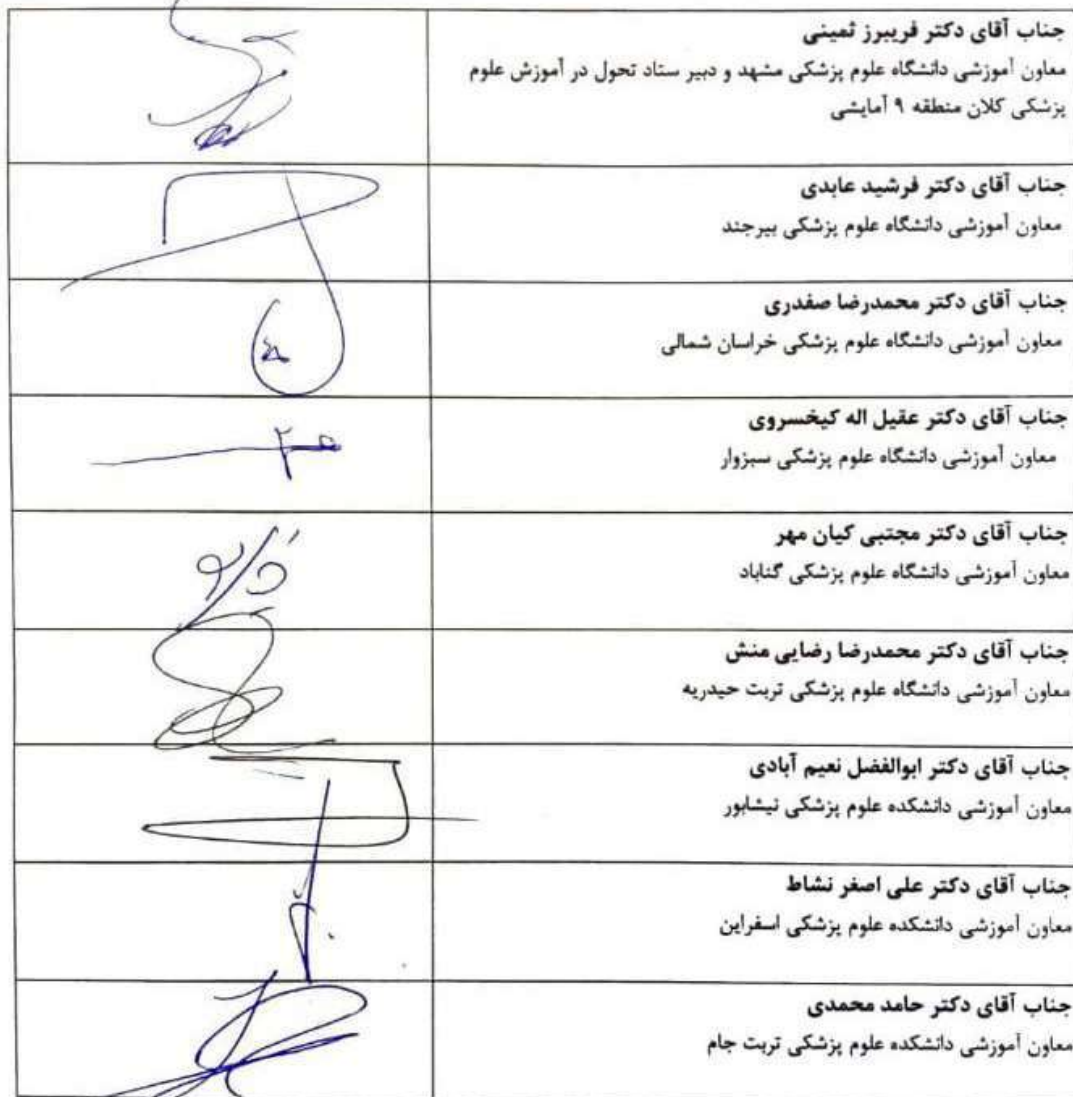 جناب آقای دکتر فریبرز ثمینی
معاون آموزشی دانشگاه علوم پزشکی مشهد و دبیر ستاد تحول در آموزش علوم
پزشکی کلان منطقه ۹ آمایشی
جناب آقای دکتر فرشید عابدی
معاون آموزشی دانشگاه علوم پزشکی بیرجند
جناب آقای دکتر محمدرضا صفدری
معاون آموزشی دانشگاه علوم پزشکی خراسان شمالی
جناب آقای دکتر عقیل اله کیخسروی
معاون آموزشی دانشگاه علوم پزشکی سبزوار
جناب آقای دکتر مجتبی کیان مهر
معاون آموزشی دانشگاه علوم پزشکی گناباد
جناب آقای دکتر محمدرضا رضایی منش
معاون آموزشی دانشگاه علوم پزشکی تربت حیدریه
جناب آقای دکتر ابوالفضل نعیم آبادی
معاون آموزشی دانشکده علوم پزشکی نیشابور
جناب آقای دکتر علی اصغر نشاط
معاون آموزشی دانشکده علوم پزشکی اسفراین
جناب آقای دکتر حامد محمدی
معاون آموزشی دانشکده علوم پزشکی تربت جام